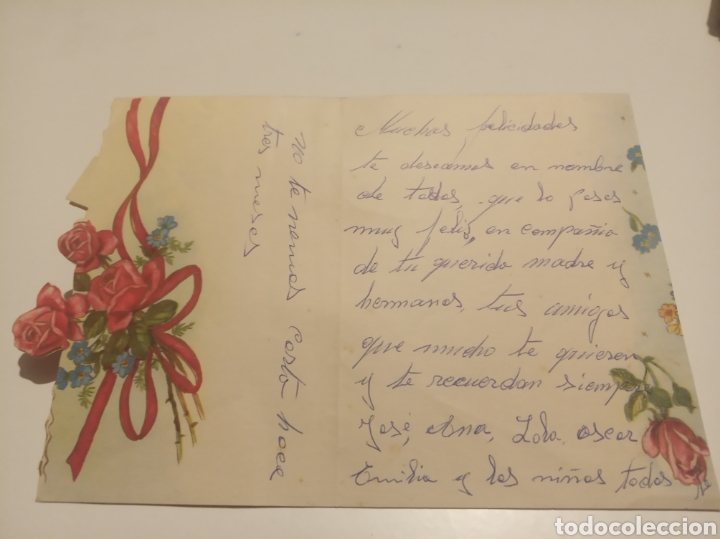 Muchas felicidades
te deseamos en nombre
de todos, que lo pases
muy felis, en compañia
de tu querida madre y
hermanos, tus amigos
que mucho te quieren
y te recuerdan siempre
José, Ana, Lola, Oscar
Emilia y los niños todos
no te nemos carta hace
tres meses
todocoleccion.net